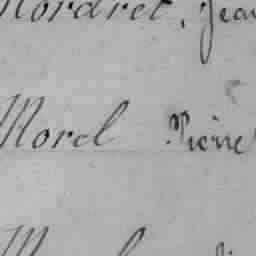 Mordret, Jean
Morel Pierre